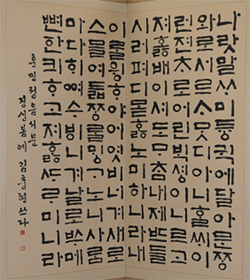 나랏말ᄊᆞ미듕귁에달아문
와로서르ᄉᆞᄆᆞᆺ디아니ᄒᆞᆯᄊᆡ이
런젼ᄎᆞ로어린ᄇᆡᆨ셩이니르고
져홇배이셔도ᄆᆞᄎᆞᆷ내제ᄠᅳ들
시러펴디몯ᄒᆞᇙ노미하니라내
이ᄅᆞᆯ윙ᄒᆞ야어엿비너겨새로
스믈여듧ᄍᆞᆼᄅᆞᆯᄆᆡᇰᄀᆞ노니사ᄅᆞᆷ
마다ᄒᆡᅇᅧ수ᄫᅵ니겨날로ᄡᅮ메
뼌한킈ᄒᆞ고져ᄒᆞᇙᄯᆞᄅᆞ미니라
훈민정음서문
경신봄에 쓰다